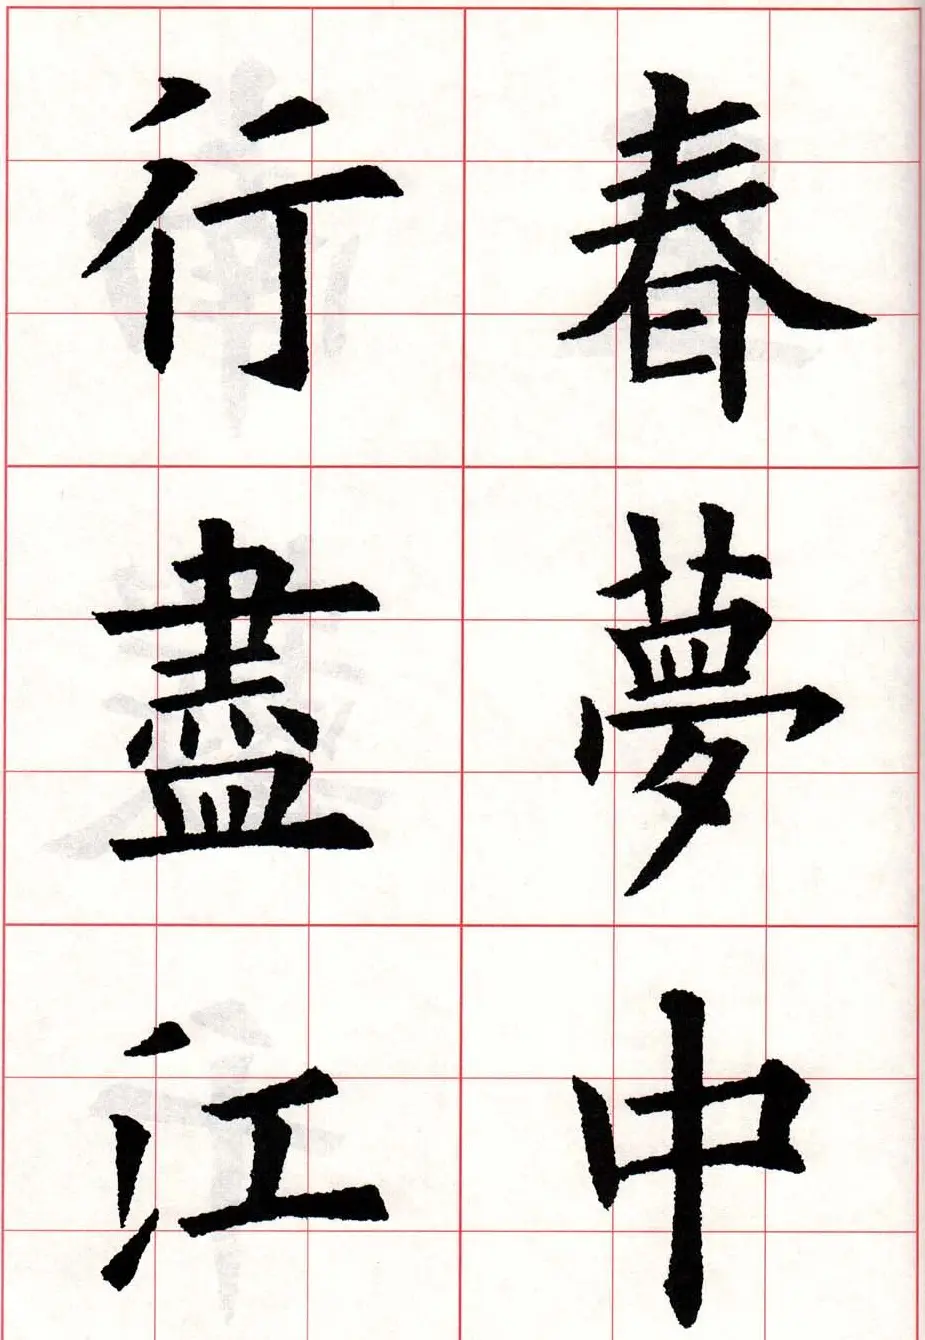 春夢中
行盡江